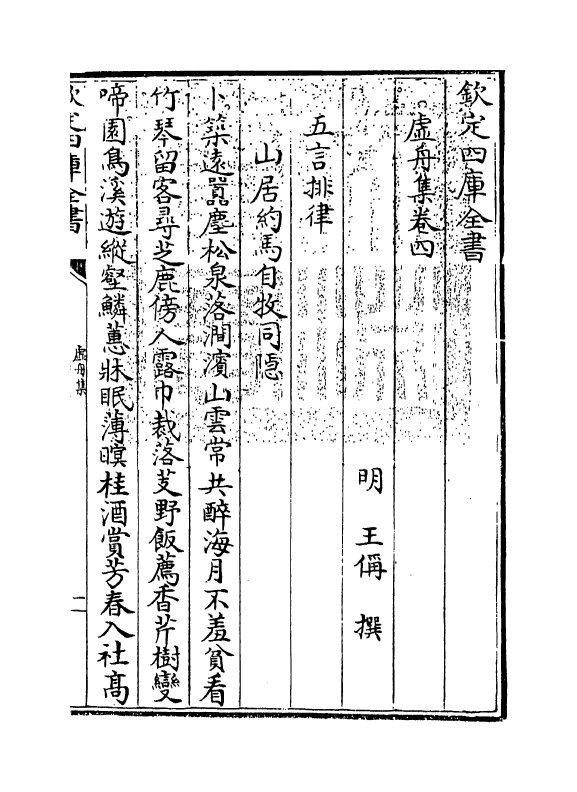 欽定四庫全書
虛舟集卷四
明 王偁 撰
五言排律
山居約馬自牧同隱
卜築遠囂塵松泉落澗濱山雲常共醉海月不羞貧看
竹琴留客尋芝鹿傍人露巾裁落芰野飯薦香芹樹變
啼園鳥溪遊縱壑鱗蕙牀眠薄暝桂酒賞芳春入社高
欽定四庫全書
虛舟集
一